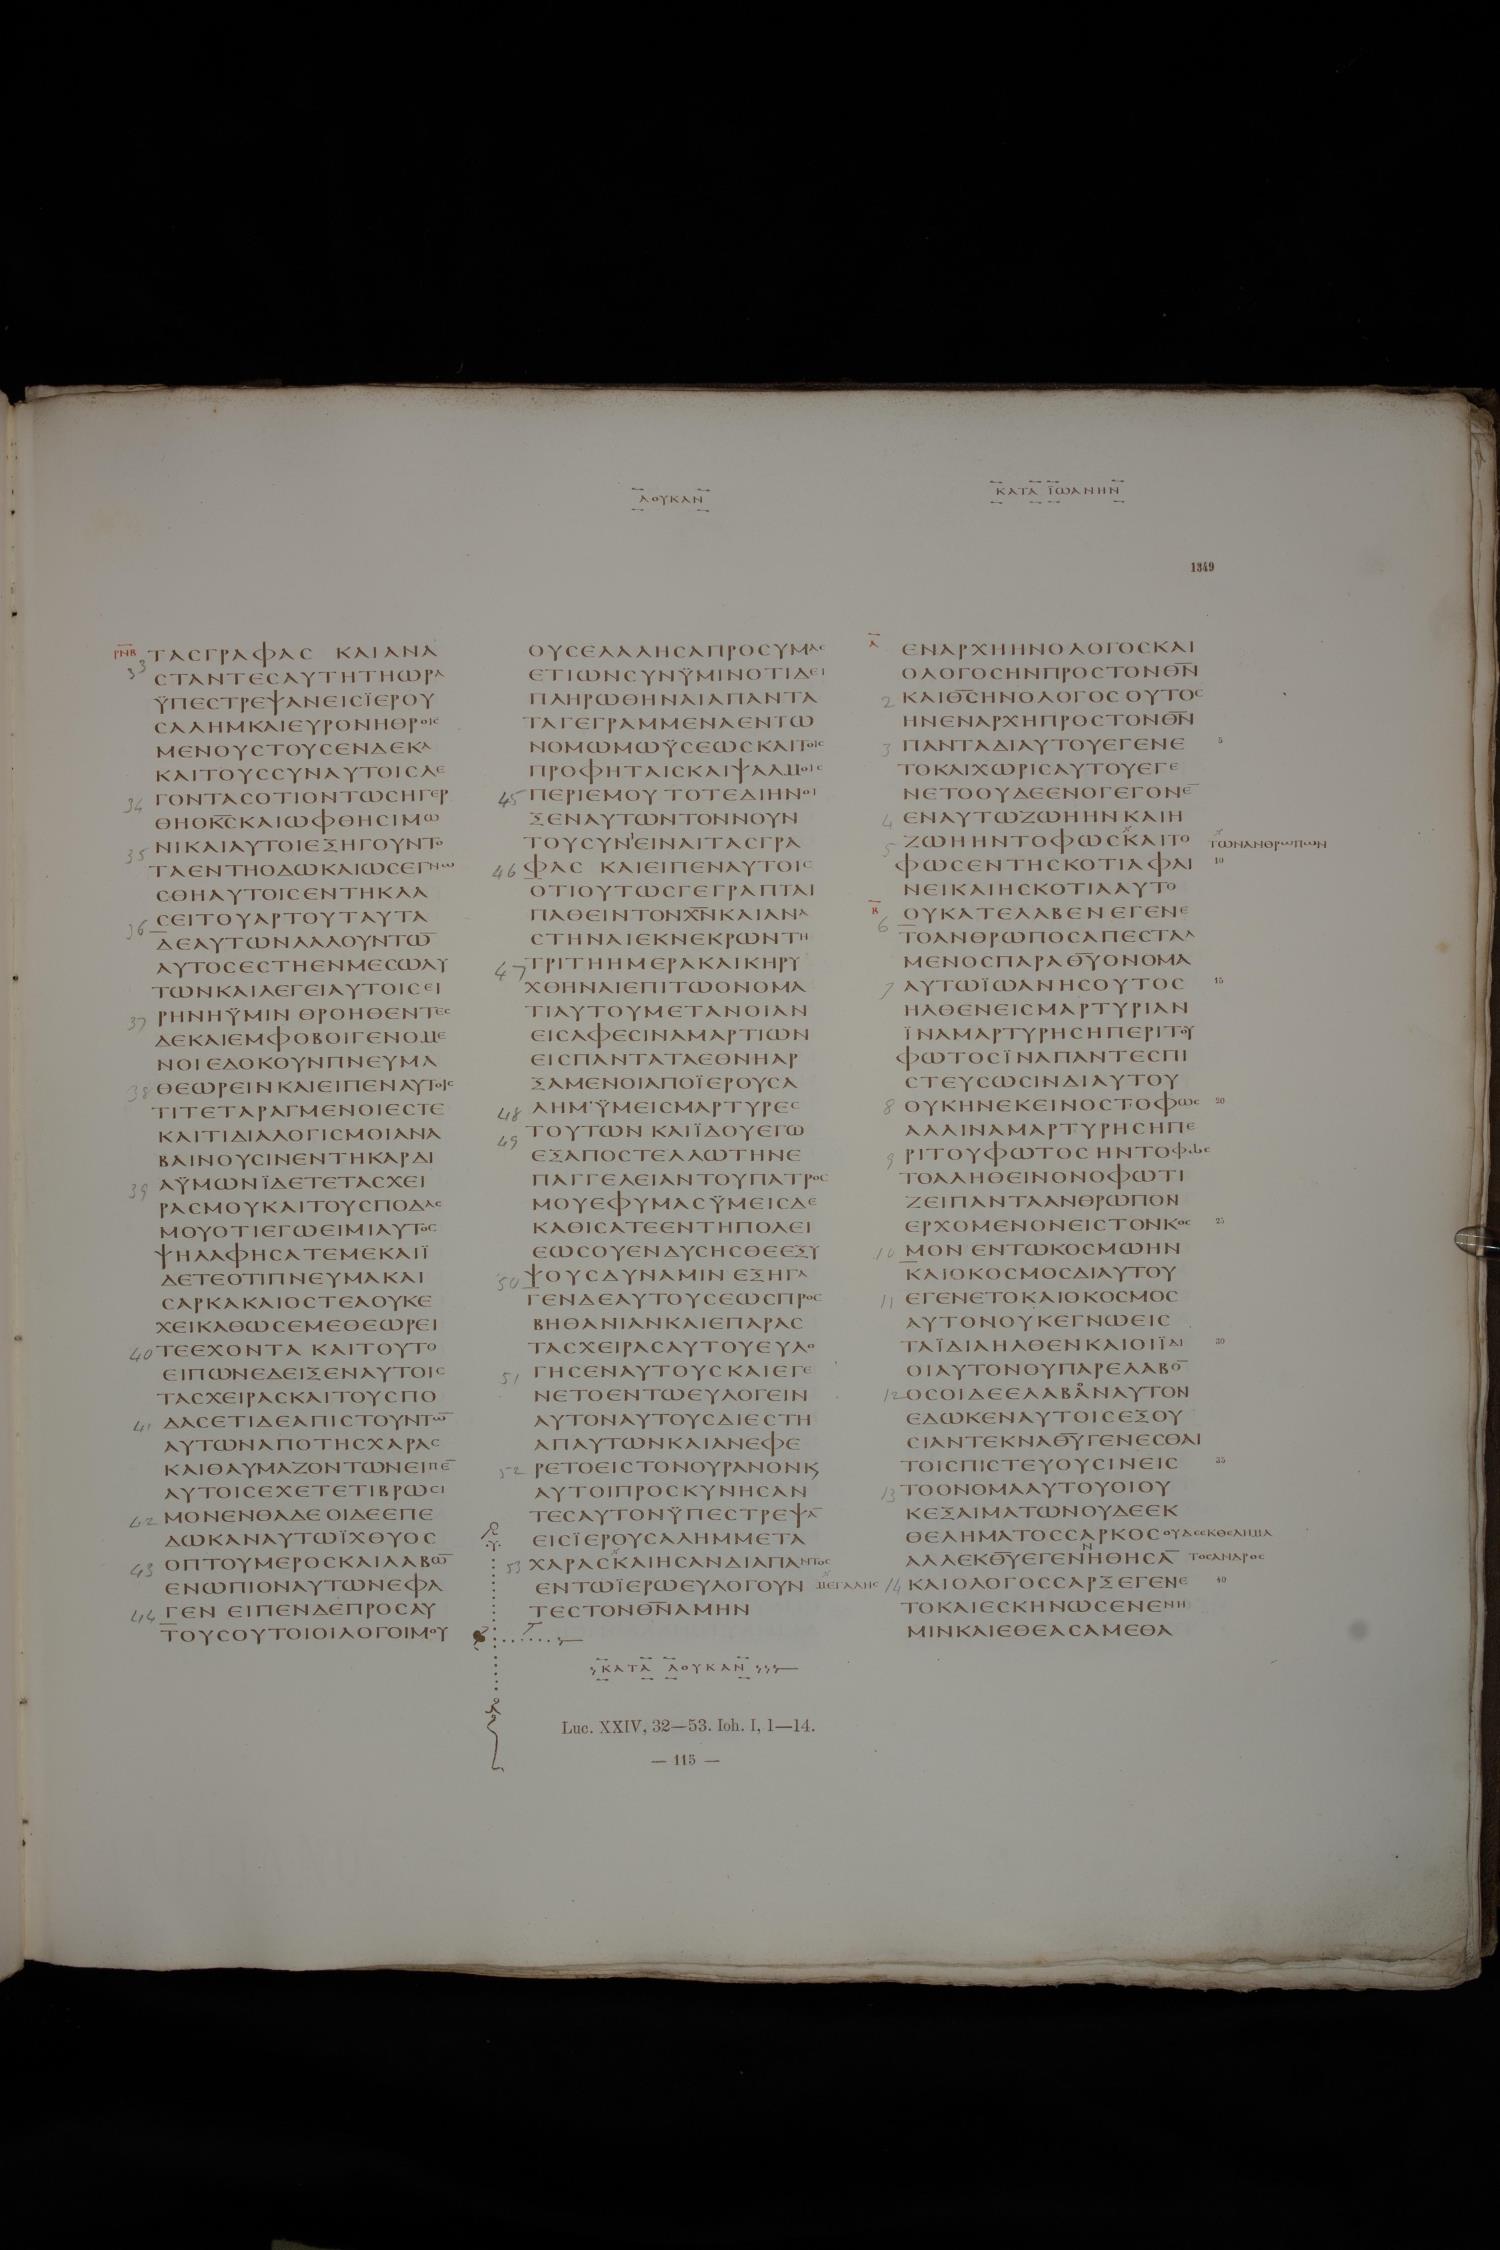 ΛΟΥΚΑΝ
ΚΑΤΑ ΪΩΑΝΗΝ
1349
ΡΝΒ ΤΑϹΓΡΑΦΑϹ ΚΑΙΑΝΑ
33 ϹΤΑΝΤΕϹΑΥΤΗΤΗΩΡΑ
ΫΠΕϹΤΡΕΨΑΝΕΙϹΪΕΡΟΥ
ϹΑΛΗΜΚΑΙΕΥΡΟΝΗΘΡΟΙϹ
ΜΕΝΟΥϹΤΟΥϹΕΝΔΕΚΑ
ΚΑΙΤΟΥϹϹΥΝΑΥΤΟΙϹΛΕ
34 ΓΟΝΤΑϹΟΤΙΟΝΤΩϹΗΓΕΡ
ΘΗΟΚ̅Ϲ̅ΚΑΙΩΦΘΗϹΙΜΩ
35 ΝΙΚΑΙΑΥΤΟΙΕΞΗΓΟΥΝΤΟ
ΤΑΕΝΤΗΟΔΩΚΑΙΩϹΕΓΝΩ
ϹΘΗΑΥΤΟΙϹΕΝΤΗΚΛΑ
36 ϹΕΙΤΟΥΑΡΤΟΥΤΑΥΤΑ
ΔΕΑΥΤΩΝΛΑΛΟΥΝΤΩ̅
ΑΥΤΟϹΕϹΤΗΕΝΜΕϹΩΑΥ
ΤΩΝΚΑΙΛΕΓΕΙΑΥΤΟΙϹΕΙ
37 ΡΗΝΗΫΜΙΝ ΘΡΟΗΘΕΝΤΕϹ
ΔΕΚΑΙΕΜΦΟΒΟΙΓΕΝΟΜΕ
ΝΟΙΕΔΟΚΟΥΝΠΝΕΥΜΑ
38 ΘΕΩΡΕΙΝΚΑΙΕΙΠΕΝΑΥΤΟΙϹ
ΤΙΤΕΤΑΡΑΓΜΕΝΟΙΕϹΤΕ
ΚΑΙΤΙΔΙΑΛΟΓΙϹΜΟΙΑΝΑ
ΒΑΙΝΟΥϹΙΝΕΝΤΗΚΑΡΔΙ
39 ΑΫΜΩΝΪΔΕΤΕΤΑϹΧΕΙ
ΡΑϹΜΟΥΚΑΙΤΟΥϹΠΟΔΑϹ
ΜΟΥΟΤΙΕΓΩΕΙΜΙΑΥΤΟϹ
ΨΗΛΑΦΗϹΑΤΕΜΕΚΑΙΪ
ΔΕΤΕΟΤΙΠΝΕΥΜΑΚΑΙ
ϹΑΡΚΑΚΑΙΟϹΤΕΑΟΥΚΕ
ΧΕΙΚΑΘΩϹΕΜΕΘΕΩΡΕΙ
40 ΤΕΕΧΟΝΤΑ ΚΑΙΤΟΥΤΟ
ΕΙΠΩΝΕΔΕΙΞΕΝΑΥΤΟΙϹ
ΤΑϹΧΕΙΡΑϹΚΑΙΤΟΥϹΠΟ
41 ΔΑϹΕΤΙΔΕΑΠΙϹΤΟΥΝΤΩ̅
ΑΥΤΩΝΑΠΟΤΗϹΧΑΡΑϹ
ΚΑΙΘΑΥΜΑΖΟΝΤΩΝΕΙΠΕ̅
ΑΥΤΟΙϹΕΧΕΤΕΤΙΒΡΩϹΙ
42 ΜΟΝΕΝΘΑΔΕ ΟΙΔΕΕΠΕ
ΔΩΚΑΝΑΥΤΩΪΧΘΥΟϹ
43 ΟΠΤΟΥΜΕΡΟϹΚΑΙΛΑΒΩ̅
ΕΝΩΠΙΟΝΑΥΤΩΝΕΦΑ
44 ΓΕΝ ΕΙΠΕΝΔΕΠΡΟϹΑΥ
ΤΟΥϹΟΥΤΟΙΟΙΛΟΓΟΙΜΟΥ
ΟΥϹΕΛΑΛΗϹΑΠΡΟϹΥΜΑϹ
ΕΤΙΩΝϹΥΝΫΜΙΝΟΤΙΔΕΙ
ΠΛΗΡΩΘΗΝΑΙΑΠΑΝΤΑ
ΤΑΓΕΓΡΑΜΜΕΝΑΕΝΤΩ
ΝΟΜΩΜΩΫϹΕΩϹΚΑΙΤΟΙϹ
ΠΡΟΦΗΤΑΙϹΚΑΙΨΑΛΜΟΙϹ
45 ΠΕΡΙΕΜΟΥ ΤΟΤΕΔΙΗΝΟΙ
ΞΕΝΑΥΤΩΝΤΟΝΝΟΥΝ
ΤΟΥϹΥΝ'ΕΙΝΑΙΤΑϹΓΡΑ
46 ΦΑϹ ΚΑΙΕΙΠΕΝΑΥΤΟΙϹ
ΟΤΙΟΥΤΩϹΓΕΓΡΑΠΤΑΙ
ΠΑΘΕΙΝΤΟΝΧ̅Ν̅ΚΑΙΑΝΑ
ϹΤΗΝΑΙΕΚΝΕΚΡΩΝΤΗ
47 ΤΡΙΤΗΗΜΕΡΑΚΑΙΚΗΡΥ
ΧΘΗΝΑΙΕΠΙΤΩΟΝΟΜΑ
ΤΙΑΥΤΟΥΜΕΤΑΝΟΙΑΝ
ΕΙϹΑΦΕϹΙΝΑΜΑΡΤΙΩΝ
ΕΙϹΠΑΝΤΑΤΑΕΘΝΗΑΡ
ΞΑΜΕΝΟΙΑΠΟΪΕΡΟΥϹΑ
48 ΛΗΜ·ΫΜΕΙϹΜΑΡΤΥΡΕϹ
49 ΤΟΥΤΩΝ ΚΑΙΪΔΟΥΕΓΩ
ΕΞΑΠΟϹΤΕΛΛΩΤΗΝΕ
ΠΑΓΓΕΛΕΙΑΝΤΟΥΠΑΤΡΟϹ
ΜΟΥΕΦΥΜΑϹΫΜΕΙϹΔΕ
ΚΑΘΙϹΑΤΕΕΝΤΗΠΟΛΕΙ
ΕΩϹΟΥΕΝΔΥϹΗϹΘΕΕΞΥ
50 ΨΟΥϹΔΥΝΑΜΙΝ ΕΞΗΓΑ
ΓΕΝΔΕΑΥΤΟΥϹΕΩϹΠΡΟϹ
ΒΗΘΑΝΙΑΝΚΑΙΕΠΑΡΑϹ
ΤΑϹΧΕΙΡΑϹΑΥΤΟΥΕΥΛΟ
51 ΓΗϹΕΝΑΥΤΟΥϹΚΑΙΕΓΕ
ΝΕΤΟΕΝΤΩΕΥΛΟΓΕΙΝ
ΑΥΤΟΝΑΥΤΟΥϹΔΙΕϹΤΗ
ΑΠΑΥΤΩΝΚΑΙΑΝΕΦΕ
52 ΡΕΤΟΕΙϹΤΟΝΟΥΡΑΝΟΝΚϗ
ΑΥΤΟΙΠΡΟϹΚΥΝΗϹΑΝ
ΤΕϹΑΥΤΟΝΫΠΕϹΤΡΕΨΑ̅
ΕΙϹΪΕΡΟΥϹΑΛΗΜΜΕΤΑ
53 ΧΑΡΑϹΚΑΙΗϹΑΝΔΙΑΠΑΝΤΟϹ
ΕΝΤΩΪΕΡΩΕΥΛΟΓΟΥΝ ΜΕΓΑΛΗϹ
ΤΕϹΤΟΝΘ̅Ν̅ΑΜΗΝ
ΚΑΤΑ ΛΟΥΚΑΝ
Α ΕΝΑΡΧΗΗΝΟΛΟΓΟϹΚΑΙ
ΟΛΟΓΟϹΗΝΠΡΟϹΤΟΝΘ̅Ν̅
2 ΚΑΙΘ̅Ϲ̅ΗΝΟΛΟΓΟϹ ΟΥΤΟϹ
ΗΝΕΝΑΡΧΗΠΡΟϹΤΟΝΘ̅Ν̅
3 ΠΑΝΤΑΔΙΑΥΤΟΥΕΓΕΝΕ 5
ΤΟΚΑΙΧΩΡΙϹΑΥΤΟΥΕΓΕ
ΝΕΤΟΟΥΔΕΕΝΟΓΕΓΟΝΕ̅
4 ΕΝΑΥΤΩΖΩΗΗΝΚΑΙΗ
5 ΖΩΗΗΝΤΟΦΩϹΚΑΙΤΟ ΤΩΝΑΝΘΡΩΠΩΝ
ΦΩϹΕΝΤΗϹΚΟΤΙΑΦΑΙ 10
ΝΕΙΚΑΙΗϹΚΟΤΙΑΑΥΤΟ
Β ΟΥΚΑΤΕΛΑΒΕΝΕΓΕΝΕ
6 ΤΟΑΝΘΡΩΠΟϹΑΠΕϹΤΑΛ
ΜΕΝΟϹΠΑΡΑΘ̅Υ̅ΟΝΟΜΑ
7 ΑΥΤΩΪΩΑΝΗϹΟΥΤΟϹ 15
ΗΛΘΕΝΕΙϹΜΑΡΤΥΡΙΑΝ
ΪΝΑΜΑΡΤΥΡΗϹΗΠΕΡΙΤΟΥ
ΦΩΤΟϹΪΝΑΠΑΝΤΕϹΠΙ
ϹΤΕΥϹΩϹΙΝΔΙΑΥΤΟΥ
8 ΟΥΚΗΝΕΚΕΙΝΟϹΤΟΦΩϹ 20
ΑΛΛΙΝΑΜΑΡΤΥΡΗϹΗΠΕ
9 ΡΙΤΟΥΦΩΤΟϹ ΗΝΤΟΦΩϹ
ΤΟΑΛΗΘΕΙΝΟΝΟΦΩΤΙ
ΖΕΙΠΑΝΤΑΑΝΘΡΩΠΟΝ
ΕΡΧΟΜΕΝΟΝΕΙϹΤΟΝΚΟϹ 25
10 ΜΟΝ ΕΝΤΩΚΟϹΜΩΗΝ
ΚΑΙΟΚΟϹΜΟϹΔΙΑΥΤΟΥ
11 ΕΓΕΝΕΤΟΚΑΙΟΚΟϹΜΟϹ
ΑΥΤΟΝΟΥΚΕΓΝΩΕΙϹ
ΤΑΪΔΙΑΗΛΘΕΝΚΑΙΟΙΪΔΙ 30
ΟΙΑΥΤΟΝΟΥΠΑΡΕΛΑΒΟ̅
12 ΟϹΟΙΔΕΕΛΑΒΑΝΑΥΤΟΝ
ΕΔΩΚΕΝΑΥΤΟΙϹΕΞΟΥ
ϹΙΑΝΤΕΚΝΑΘ̅Υ̅ΓΕΝΕϹΘΑΙ
ΤΟΙϹΠΙϹΤΕΥΟΥϹΙΝΕΙϹ 35
13 ΤΟΟΝΟΜΑΑΥΤΟΥΟΙΟΥ
ΚΕΞΑΙΜΑΤΩΝΟΥΔΕΕΚ
ΘΕΛΗΜΑΤΟϹϹΑΡΚΟϹ ΟΥΔΕΕΚΘΕΛΗΜΑ
ΑΛΛΕΚΘ̅Υ̅ΕΓΕΝΝΗΘΗϹΑ̅ ΤΟϹΑΝΔΡΟϹ
14 ΚΑΙΟΛΟΓΟϹϹΑΡΞΕΓΕΝΕ 40
ΤΟΚΑΙΕϹΚΗΝΩϹΕΝΕΝΗ
ΜΙΝΚΑΙΕΘΕΑϹΑΜΕΘΑ
Luc. XXIV, 32—53. Ioh. I, 1—14.
— 115 —